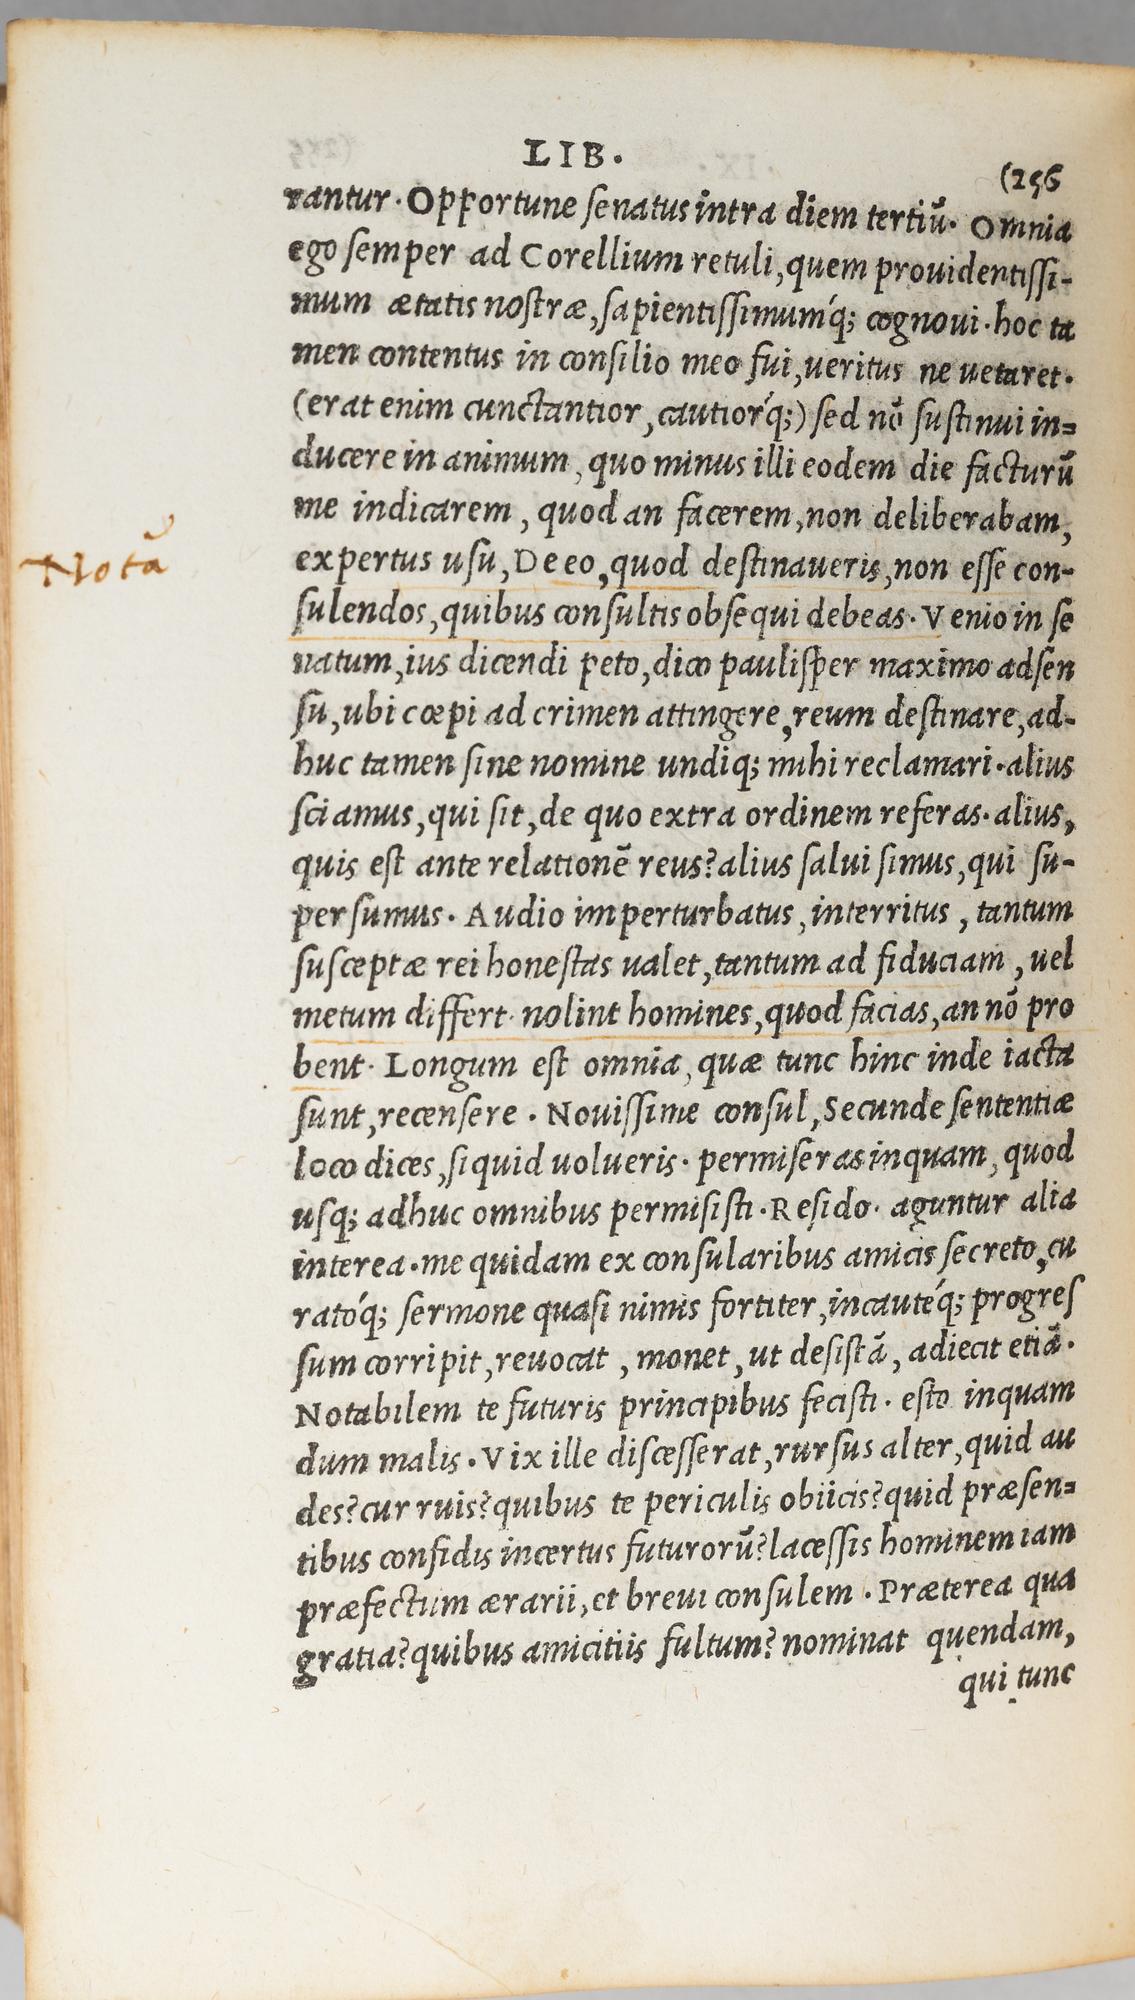 LIB.
(256
rantur. Opportune senatus intra diem tertiū. Omnia
ego semper ad Corellium retuli, quem prouidentissi-
mum ætatis nostræ, sapientissimumq́; cognoui. hoc ta
men contentus in consilio meo fui, ueritus ne uetaret.
(erat enim cunctantior, cautiorq́;) sed nō sustinui in=
ducere in animum, quo minus illi eodem die facturū
me indicarem, quod an facerem, non deliberabam,
expertus usu, De eo, quod destinaueris, non esse con-
sulendos, quibus consultis obsequi debeas. Venio in se
natum, ius dicendi peto, dico paulisper maximo adsen
su, ubi cœpi ad crimen attingere, reum destinare, ad-
huc tamen sine nomine undiq; mihi reclamari. alius
sciamus, qui sit, de quo extra ordinem referas. alius,
quis est ante relationē reus? alius salui simus, qui su-
persumus. Audio imperturbatus, interritus, tantum
susceptæ rei honestas ualet, tantum ad fiduciam, uel
metum differt. nolint homines, quod facias, an nō pro
bent. Longum est omnia, quæ tunc hinc inde iacta
sunt, recensere. Nouissime consul, Secunde sententiæ
loco dices, si quid uolueris. permiseras inquam, quod
usq; adhuc omnibus permisisti. Resido. aguntur alia
interea. me quidam ex consularibus amicis secreto, cu
ratóq; sermone quasi nimis fortiter, incautéq; progres
sum corripit, reuocat, monet, ut desistā, adiecit etiā.
Notabilem te futuris principibus fecisti. esto inquam
dum malis. Vix ille discesserat, rursus alter, quid au
des? cur ruis? quibus te periculis obiicis? quid præsen=
tibus confidis incertus futurorū? lacessis hominem iam
præfectum ærarii, et breui consulem. Præterea qua
gratia? quibus amicitiis fultum? nominat quendam,
qui tunc
Notā